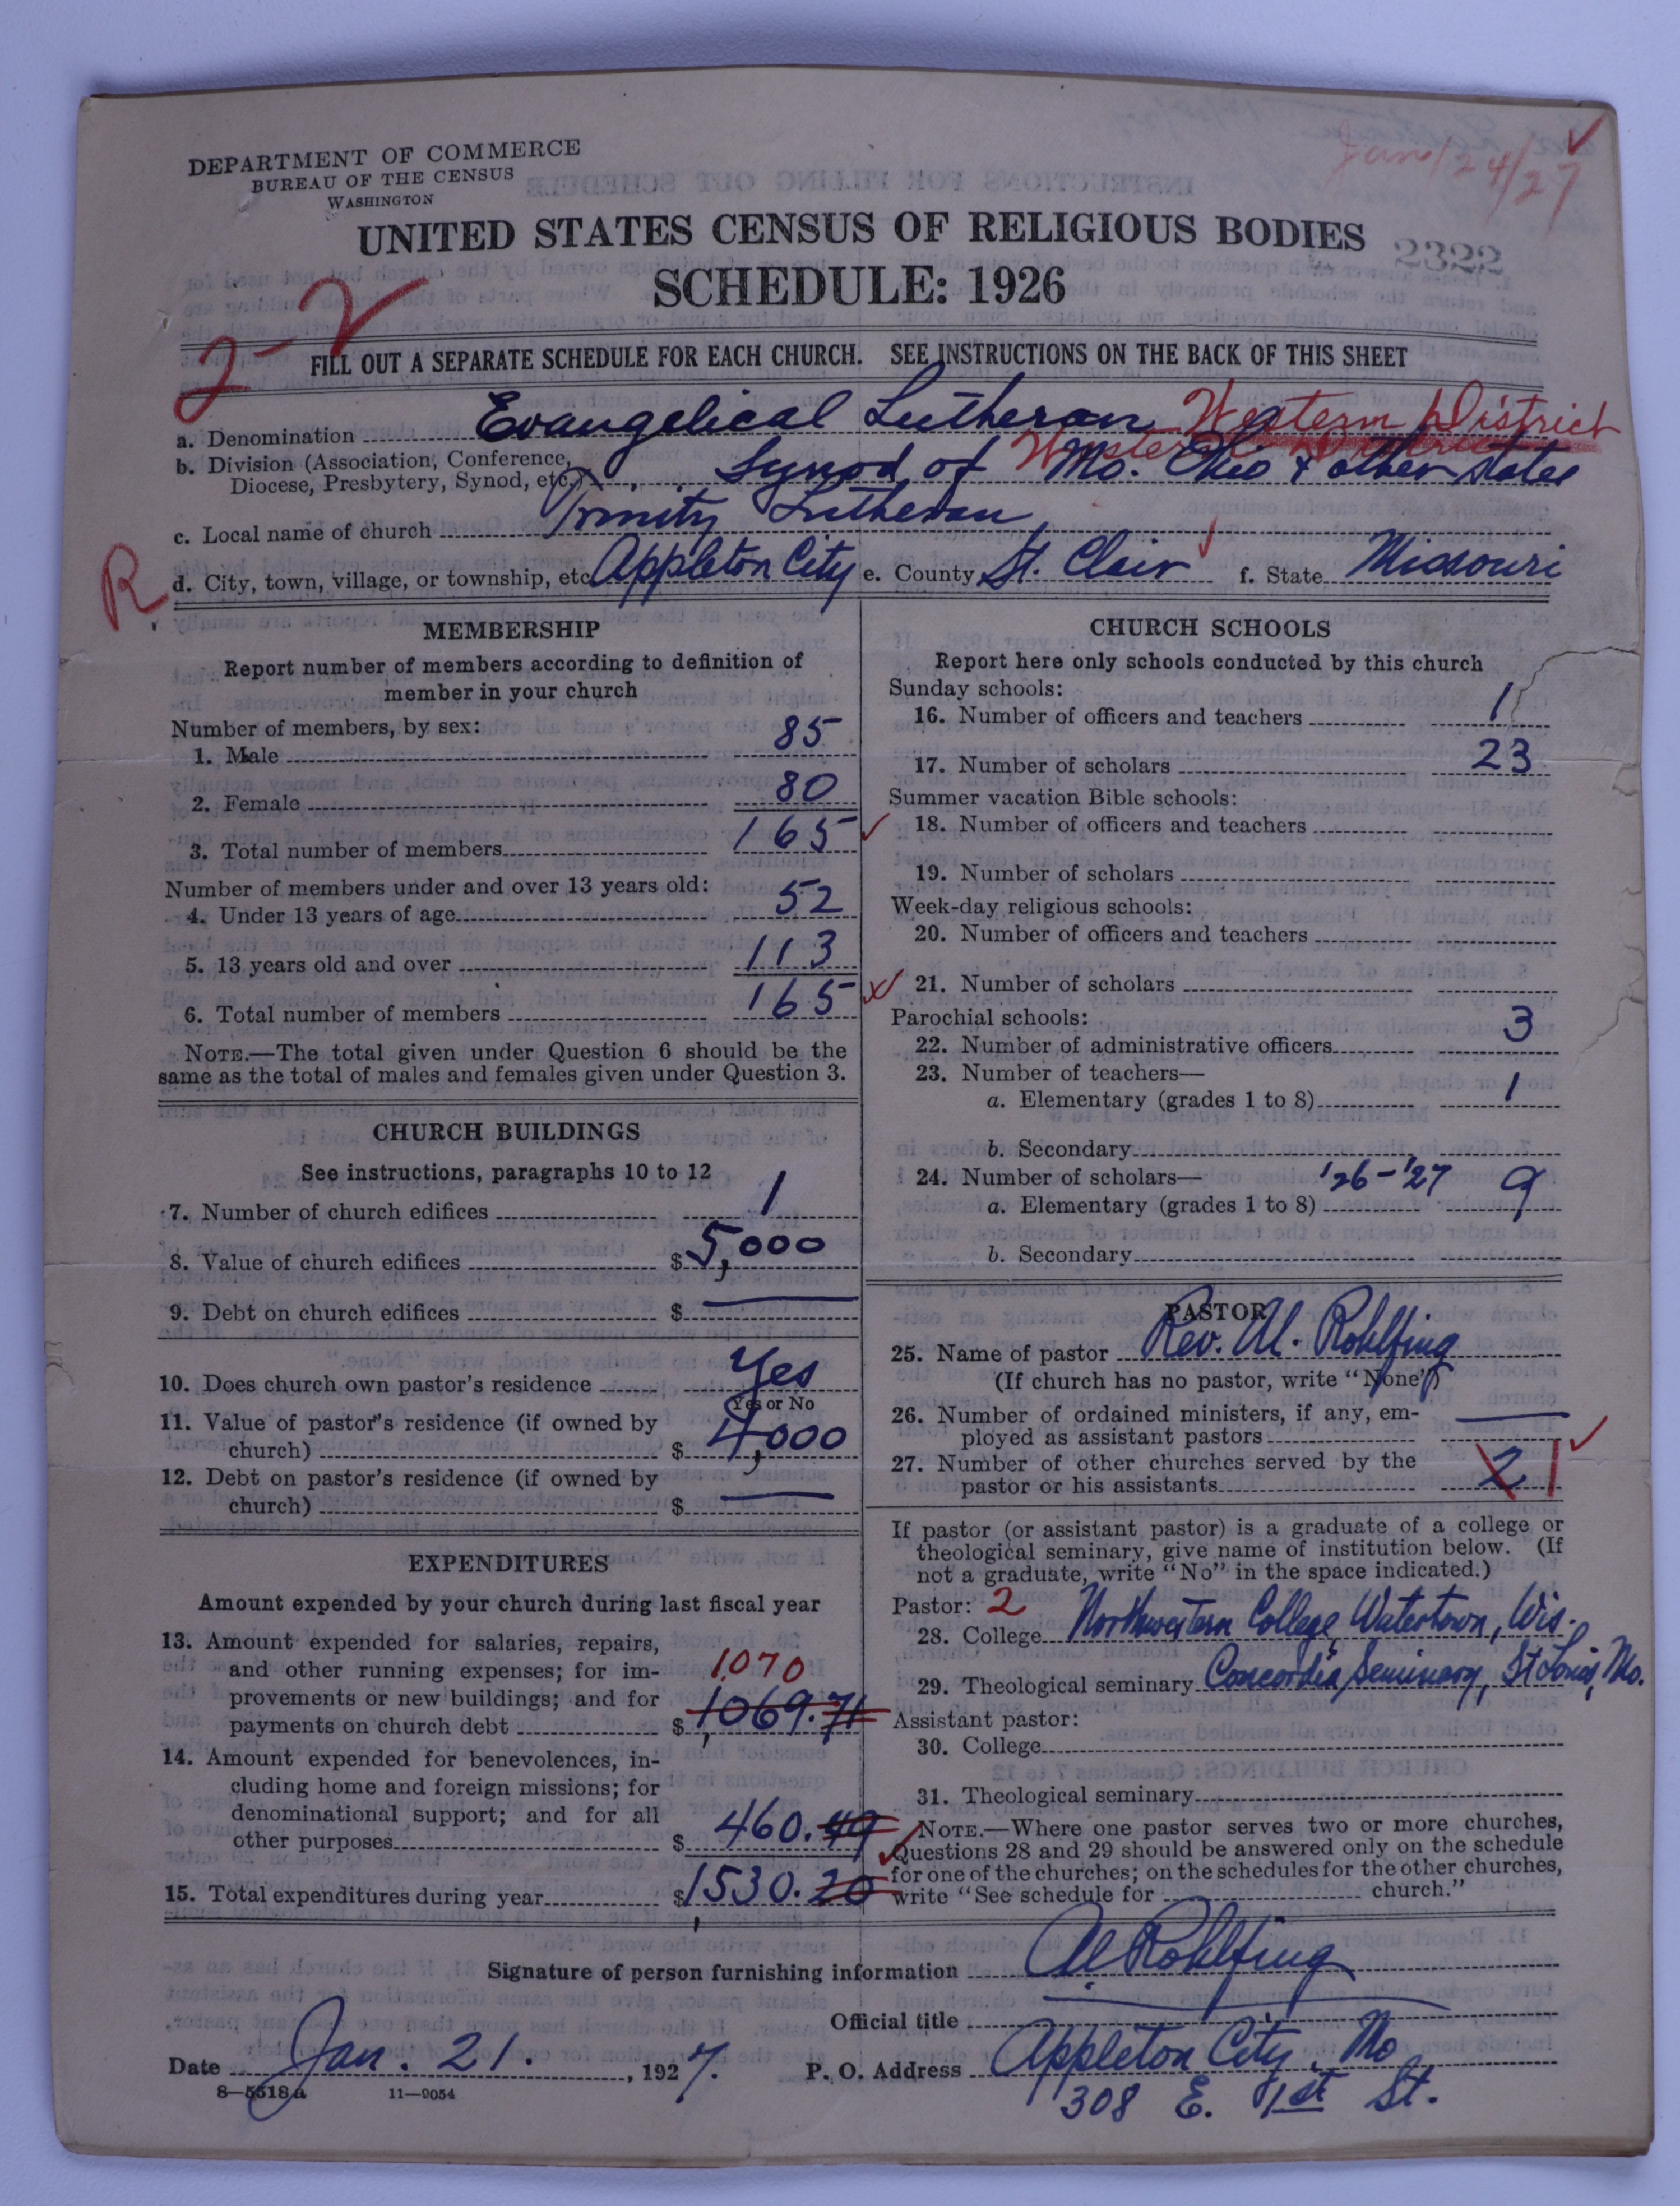 DEPARTMENT OF COMMERCE
BUREAU OF THE CENSUS
WASHINGTON
Jan 24/27
UNITED STATES CENSUS OF RELIGIOUS BODIES
2322
SCHEDULE: 1926
2-2
FILL OUT A SEPARATE SCHEDULE FOR EACH CHURCH. SEE INSTRUCTIONS ON THE BACK OF THIS SHEET
a. Denomination Evangelical Lutheran Western District
b. Division (Association, Conference, Western District
Diocese, Presbytery, Synod, etc.) Synod of Mo. Ohio & other states
c. Local name of church Trinity Lutheran
R
d. City, town, village, or township, etc. Appleton City e. County St. Clair f. State Missouri
MEMBERSHIP
Report number of members according to definition of
member in your church
Number of members, by sex:
1. Male 85
2. Female 80
3. Total number of members 165
Number of members under and over 13 years old:
4. Under 13 years of age 52
5. 13 years old and over 113
6. Total number of members 165
NOTE.—The total given under Question 6 should be the
same as the total of males and females given under Question 3.
CHURCH BUILDINGS
See instructions, paragraphs 10 to 12
7. Number of church edifices 1
8. Value of church edifices $5,000
9. Debt on church edifices $ —
10. Does church own pastor's residence Yes
Yes or No
11. Value of pastor's residence (if owned by
church) $ 4,000
12. Debt on pastor's residence (if owned by
church) $ —
EXPENDITURES
Amount expended by your church during last fiscal year
13. Amount expended for salaries, repairs,
and other running expenses; for im- 1070
provements or new buildings; and for
payments on church debt $ 1,069.71
14. Amount expended for benevolences, in-
cluding home and foreign missions; for
denominational support; and for all
other purposes $ 460.49
15. Total expenditures during year $1,530.20
CHURCH SCHOOLS
Report here only schools conducted by this church
Sunday schools:
16. Number of officers and teachers 1
17. Number of scholars 23
Summer vacation Bible schools:
18. Number of officers and teachers
19. Number of scholars
Week-day religious schools:
20. Number of officers and teachers
21. Number of scholars
Parochial schools:
22. Number of administrative officers 3
23. Number of teachers—
a. Elementary (grades 1 to 8) 1
b. Secondary
24. Number of scholars— '26-'27
a. Elementary (grades 1 to 8) 9
b. Secondary
PASTOR
25. Name of pastor Rev. Al. Rohlfing
(If church has no pastor, write "None")
26. Number of ordained ministers, if any, em-
ployed as assistant pastors —
27. Number of other churches served by the
pastor or his assistants 2 1
If pastor (or assistant pastor) is a graduate of a college or
theological seminary, give name of institution below. (If
not a graduate, write "No" in the space indicated.)
Pastor: 2
28. College Northwestern College, Watertown, Wis.
29. Theological seminary Concordia Seminary, St Louis, Mo.
Assistant pastor:
30. College
31. Theological seminary
NOTE.—Where one pastor serves two or more churches,
Questions 28 and 29 should be answered only on the schedule
for one of the churches; on the schedules for the other churches,
write "See schedule for church."
Signature of person furnishing information Al Rohlfing
Official title
Date Jan. 21. , 1927. P. O. Address Appleton City, Mo
8—5518a 11—9054 308 E. 1st St.